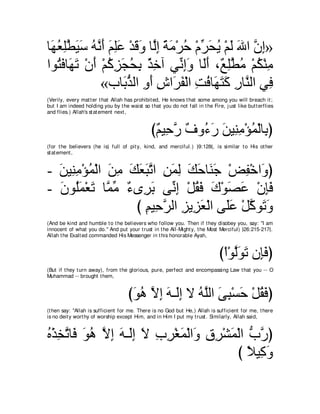 «إِنَّ اللهَ لَمْ يُحَرِّمْ حُرْمَةً إِلَّا وَقَدْ عَلِمَ أَنَّهُ سَيَطَّلِعُهَا
مِنْكُمْ مُطَّلِعٌ، أَلَا وَإِنِّي آخِذٌ بِحُجَزِكُمْ أَنْ تَهَافَتُوا
فِي النَّارِ كَتَهَافُتِ الْفَرَاشِ أَوِ الذُّبَاب»
(Verily, every matter that Allah has prohibited, He knows that some among you will breach it; but I am indeed holding you by the waist so that you do not fall in the Fire, just like butterflies and flies.) Allah's statement next,
(بِالْمُؤْمِنِينَ رَءُوفٌ رَّحِيمٌ)
(for the believers (he is) full of pity, kind, and merciful.) (9:128), is similar to His other statement,
(وَاخْفِضْ جَنَاحَكَ لِمَنِ اتَّبَعَكَ مِنَ الْمُؤْمِنِينَ -
فَإِنْ عَصَوْكَ فَقُلْ إِنِّى بَرِىءٌ مِّمَّا تَعْمَلُونَ -
وَتَوَكَّلْ عَلَى الْعَزِيزِ الرَّحِيمِ )
(And be kind and humble to the believers who follow you. Then if they disobey you, say: "I am innocent of what you do." And put your trust in the All-Mighty, the Most Merciful) (26:215-217). Allah the Exalted commanded His Messenger in this honorable Ayah,
(فَإِن تَوَلَّوْاْ)
(But if they turn away), from the glorious, pure, perfect and encompassing Law that you -- O Muhammad -- brought them,
(فَقُلْ حَسْبِىَ اللَّهُ لا إِلَـهَ إِلاَّ هُوَ)
(then say: "Allah is sufficient for me. There is no God but He,) Allah is sufficient for me, there is no deity worthy of worship except Him, and in Him I put my trust. Similarly, Allah said,
(رَّبُّ الْمَشْرِقِ وَالْمَغْرِبِ لاَ إِلَـهَ إِلاَّ هُوَ فَاتَّخِذْهُ
وَكِيلاً )